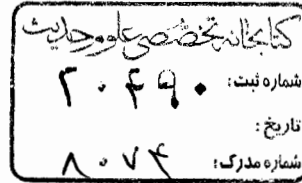 کتابخانه تخصصی علوم حدیث
شماره ثبت: ۲۰۴۹۰
تاریخ:
شماره مدرک: ۸۰۷۴